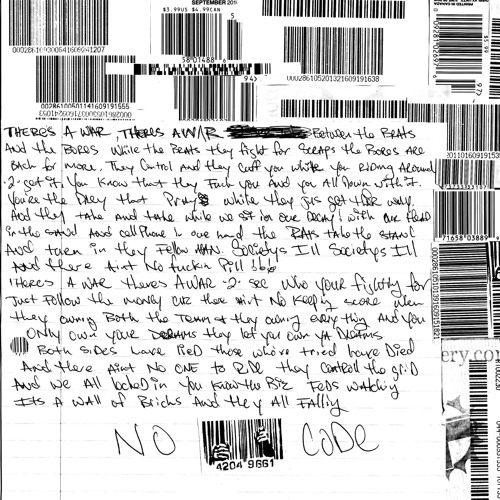 SEPTEMBER 201
$3.99US $4.99CAN
5
58 01488 6
0002861
1609041207
94>
00028610520132160919163 8
00028610050114160919155 5
PRINTED IN CANADA
$5.99
97>
THERES A WAR THERES A WAR Between the BRATS
And the BORES While the BRATS they fight for SCRAPS the BORES are
Back for more. They Control and they Cuff you while you RIDING AROUND
-2- get it. You Know that they Fuck you And you All Down with it.
You're the Prey that Prays while they Jus get their way.
And they take and take while we sit in our Decay! with our Head
in the sand And cell phone in our hand the RATS take the stand
And turn in they Fellow MAN. Societys Ill Societys Ill
And there Aint No fuckin Pill
THeres A WAR theres A WAR -2- see who your fighting for
Just Follow the money cuz there aint No Keeping score when
they owning Both the TEAMS & they owning everything And you
Only own your DREAMS they let you own ya DREAMS
Both Sides have lied those who're tried have Died
And there Aint NO ONE to RIDE they control the grid
And we All locked in You Know the Biz Feds watching
Its A Wall of Bricks And they All Falling
71658 03889
ery.co
NO CODE
4204 9661